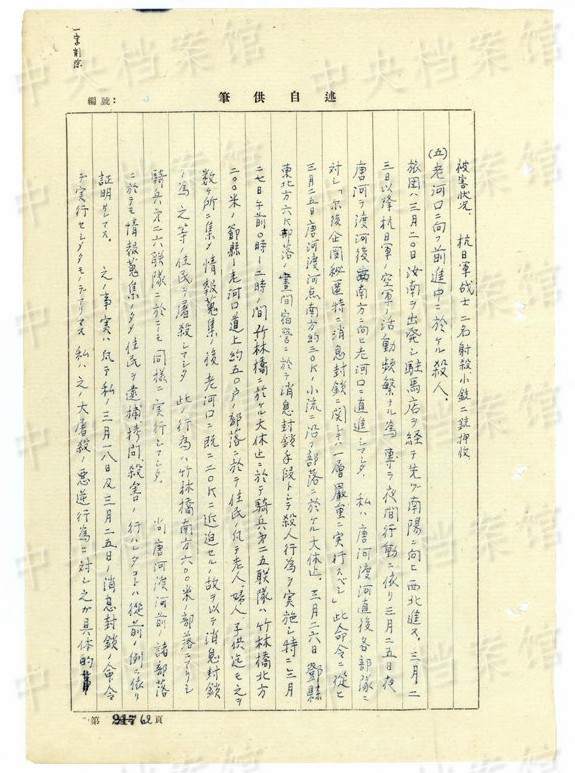 一字削除
編號：
筆供自述
被害状況、抗日軍戦士二名射殺小銃二銃押收
(五)老河口ニ向フ前進中ニ於ケル殺人、
旅団ハ三月二〇日汝南ヲ出発シ駐馬店ヲ経テ先ヅ南陽ニ向ヒ西北進ス、三月二
三日以降抗日軍ノ空軍ノ活動頻繁ナル為メ専ラ夜間行動ニ依リ三月二五日夜
唐河ヲ渡河後西南方ニ向ヒ老河口ニ直進シマシタ 私ハ唐河渡河直後各部隊ニ
対シ「尓後企図秘匿特ニ消息封鎖ニ関シテハ一層嚴重ニ実行スベシ」此命令ニ從ヒ
三月二五日唐河渡河点南方約三〇K小流ニ沿フ部落ニ於ケル大休止、三月二六日鄧縣
東北方六K部落ノ晝間宿営ニ於テ消息封鎖手段トシテ殺人行為ヲ実施シ特ニ三月
二七日午前〇時—二時ノ間竹林橋ニ於ケル大休止ニ於テ騎兵第二五联隊ハ竹林橋北方
二〇〇米ノ鄧縣—老河口道上約五〇戸ノ部落ニ於テ住民ノ凡テ老人、婦人、子供迄モ之ヲ
数ヶ所ニ集メ情報蒐集ノ後老河口ニ既ニ二〇Kニ近迫セル故ヲ以テ消息封鎖
ノ為メ之等ノ住民ヲ屠殺シマシタ 此ノ行為ハ竹林橋南方六〇〇米ノ部落ニアリシ
騎兵第二六联隊ニ於テモ同様ニ実行シマシタ 尚唐河渡河前ノ諸部落
ニ於テモ情報蒐集ノタメ住民ヲ逮捕拷問、殺害ノ行ハレタコトハ從前ノ例ニ依リ
証明シマス、之ノ事実ハ凡テ私ノ三月一八日及三月二五日ノ消息封鎖ノ命令
デ実行セシメタモノデアリマス 私ハ之ノ大屠殺ノ悪逆行為ニ対シ之ガ具体的
第 62頁
中央档案馆